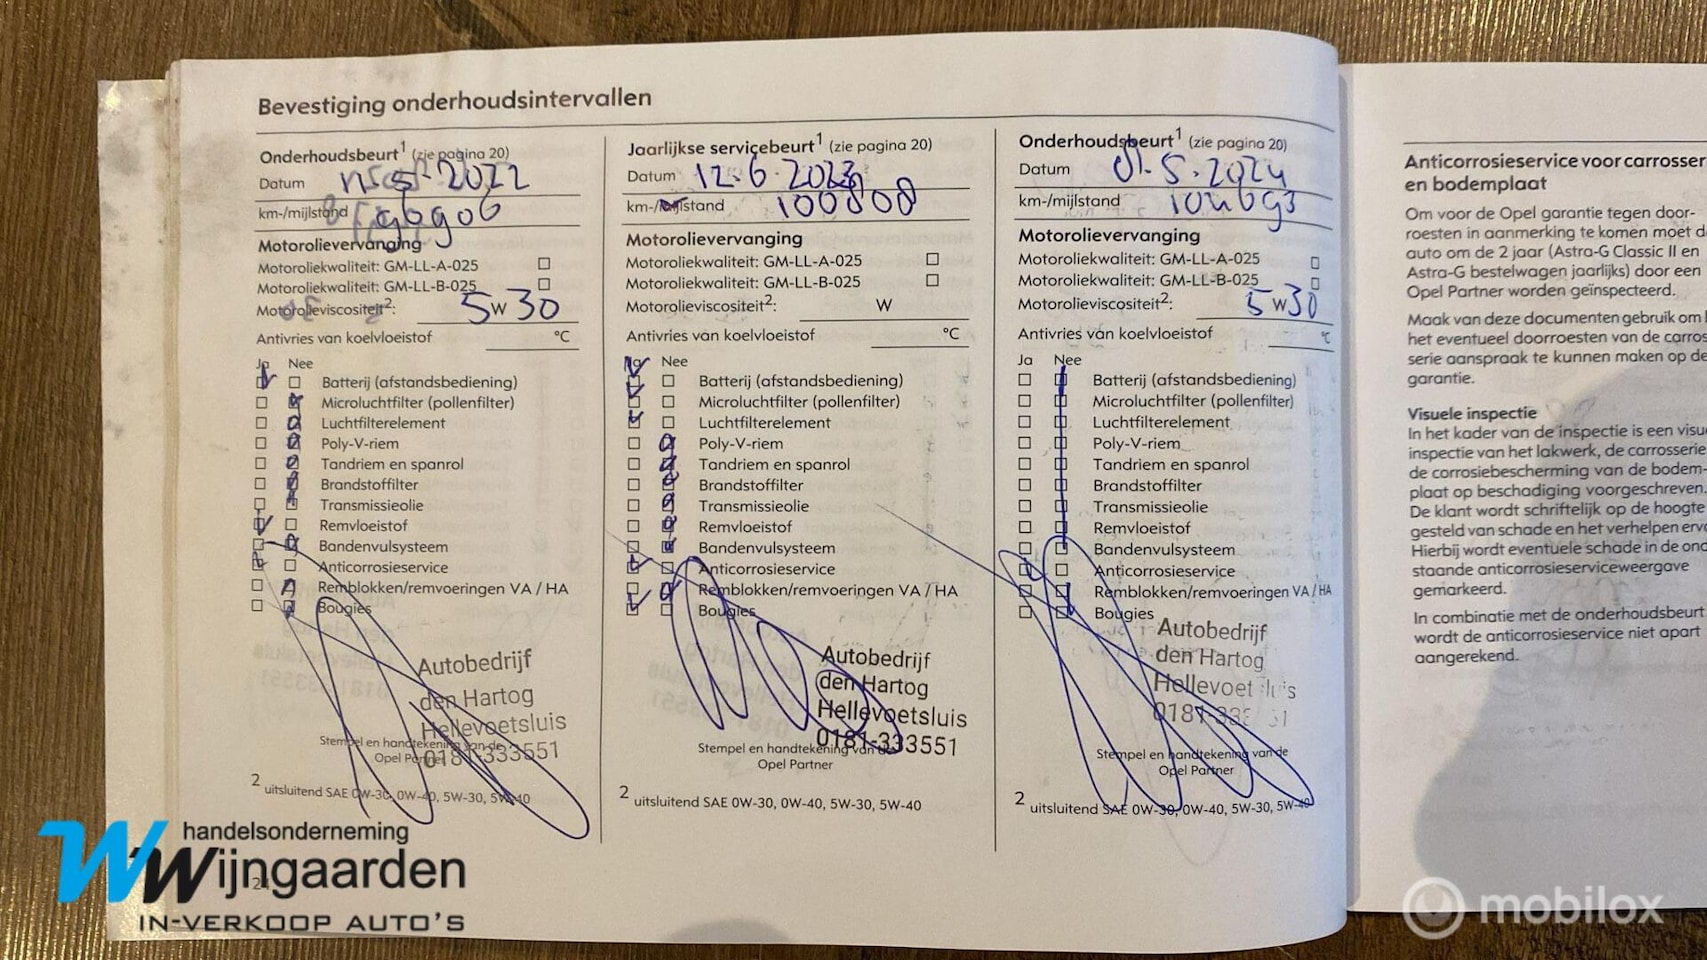 Bevestiging onderhoudsintervallen
Onderhoudsbeurt1 (zie pagina 20)
Datum 5-2022
km-/mijlstand
Motorolievervanging
Motoroliekwaliteit: GM-LL-A-025
Motoroliekwaliteit: GM-LL-B-025
Motorolieviscositeit2: 5 W 30
Antivries van koelvloeistof °C
Ja Nee
Batterij (afstandsbediening)
Microluchtfilter (pollenfilter)
Luchtfilterelement
Poly-V-riem
Tandriem en spanrol
Brandstoffilter
Transmissieolie
Remvloeistof
Bandenvulsysteem
Anticorrosieservice
Remblokken/remvoeringen VA / HA
Bougies
Autobedrijf
den Hartog
Hellevoetsluis
0181-333551
Stempel en handtekening van de
Opel Partner
2 uitsluitend SAE 0W-30, 0W-40, 5W-30, 5W-40
Jaarlijkse servicebeurt1 (zie pagina 20)
Datum 12-6-2023
km-/mijlstand 100808
Motorolievervanging
Motoroliekwaliteit: GM-LL-A-025
Motoroliekwaliteit: GM-LL-B-025
Motorolieviscositeit2: W
Antivries van koelvloeistof °C
Ja Nee
Batterij (afstandsbediening)
Microluchtfilter (pollenfilter)
Luchtfilterelement
Poly-V-riem
Tandriem en spanrol
Brandstoffilter
Transmissieolie
Remvloeistof
Bandenvulsysteem
Anticorrosieservice
Remblokken/remvoeringen VA / HA
Bougies
Autobedrijf
den Hartog
Hellevoetsluis
0181-333551
Stempel en handtekening van de
Opel Partner
2 uitsluitend SAE 0W-30, 0W-40, 5W-30, 5W-40
Onderhoudsbeurt1 (zie pagina 20)
Datum 01-5-2024
km-/mijlstand 104693
Motorolievervanging
Motoroliekwaliteit: GM-LL-A-025
Motoroliekwaliteit: GM-LL-B-025
Motorolieviscositeit2: 5 W 30
Antivries van koelvloeistof °C
Ja Nee
Batterij (afstandsbediening)
Microluchtfilter (pollenfilter)
Luchtfilterelement
Poly-V-riem
Tandriem en spanrol
Brandstoffilter
Transmissieolie
Remvloeistof
Bandenvulsysteem
Anticorrosieservice
Remblokken/remvoeringen VA / HA
Bougies
Autobedrijf
den Hartog
Hellevoetsluis
0181-333551
Stempel en handtekening van de
Opel Partner
2 uitsluitend SAE 0W-30, 0W-40, 5W-30, 5W-40
Anticorrosieservice voor carrosser
en bodemplaat
Om voor de Opel garantie tegen door-
roesten in aanmerking te komen moet d
auto om de 2 jaar (Astra-G Classic II en
Astra-G bestelwagen jaarlijks) door een
Opel Partner worden geïnspecteerd.
Maak van deze documenten gebruik om
het eventueel doorroesten van de carros
serie aanspraak te kunnen maken op de
garantie.
Visuele inspectie
In het kader van de inspectie is een visu
inspectie van het lakwerk, de carrosserie
de corrosiebescherming van de bodem-
plaat op beschadiging voorgeschreven.
De klant wordt schriftelijk op de hoogte
gesteld van schade en het verhelpen erv
Hierbij wordt eventuele schade in de ond
staande anticorrosieserviceweergave
gemarkeerd.
In combinatie met de onderhoudsbeurt
wordt de anticorrosieservice niet apart
aangerekend.
24
handelsonderneming
Wijngaarden
IN-VERKOOP AUTO'S
mobilox